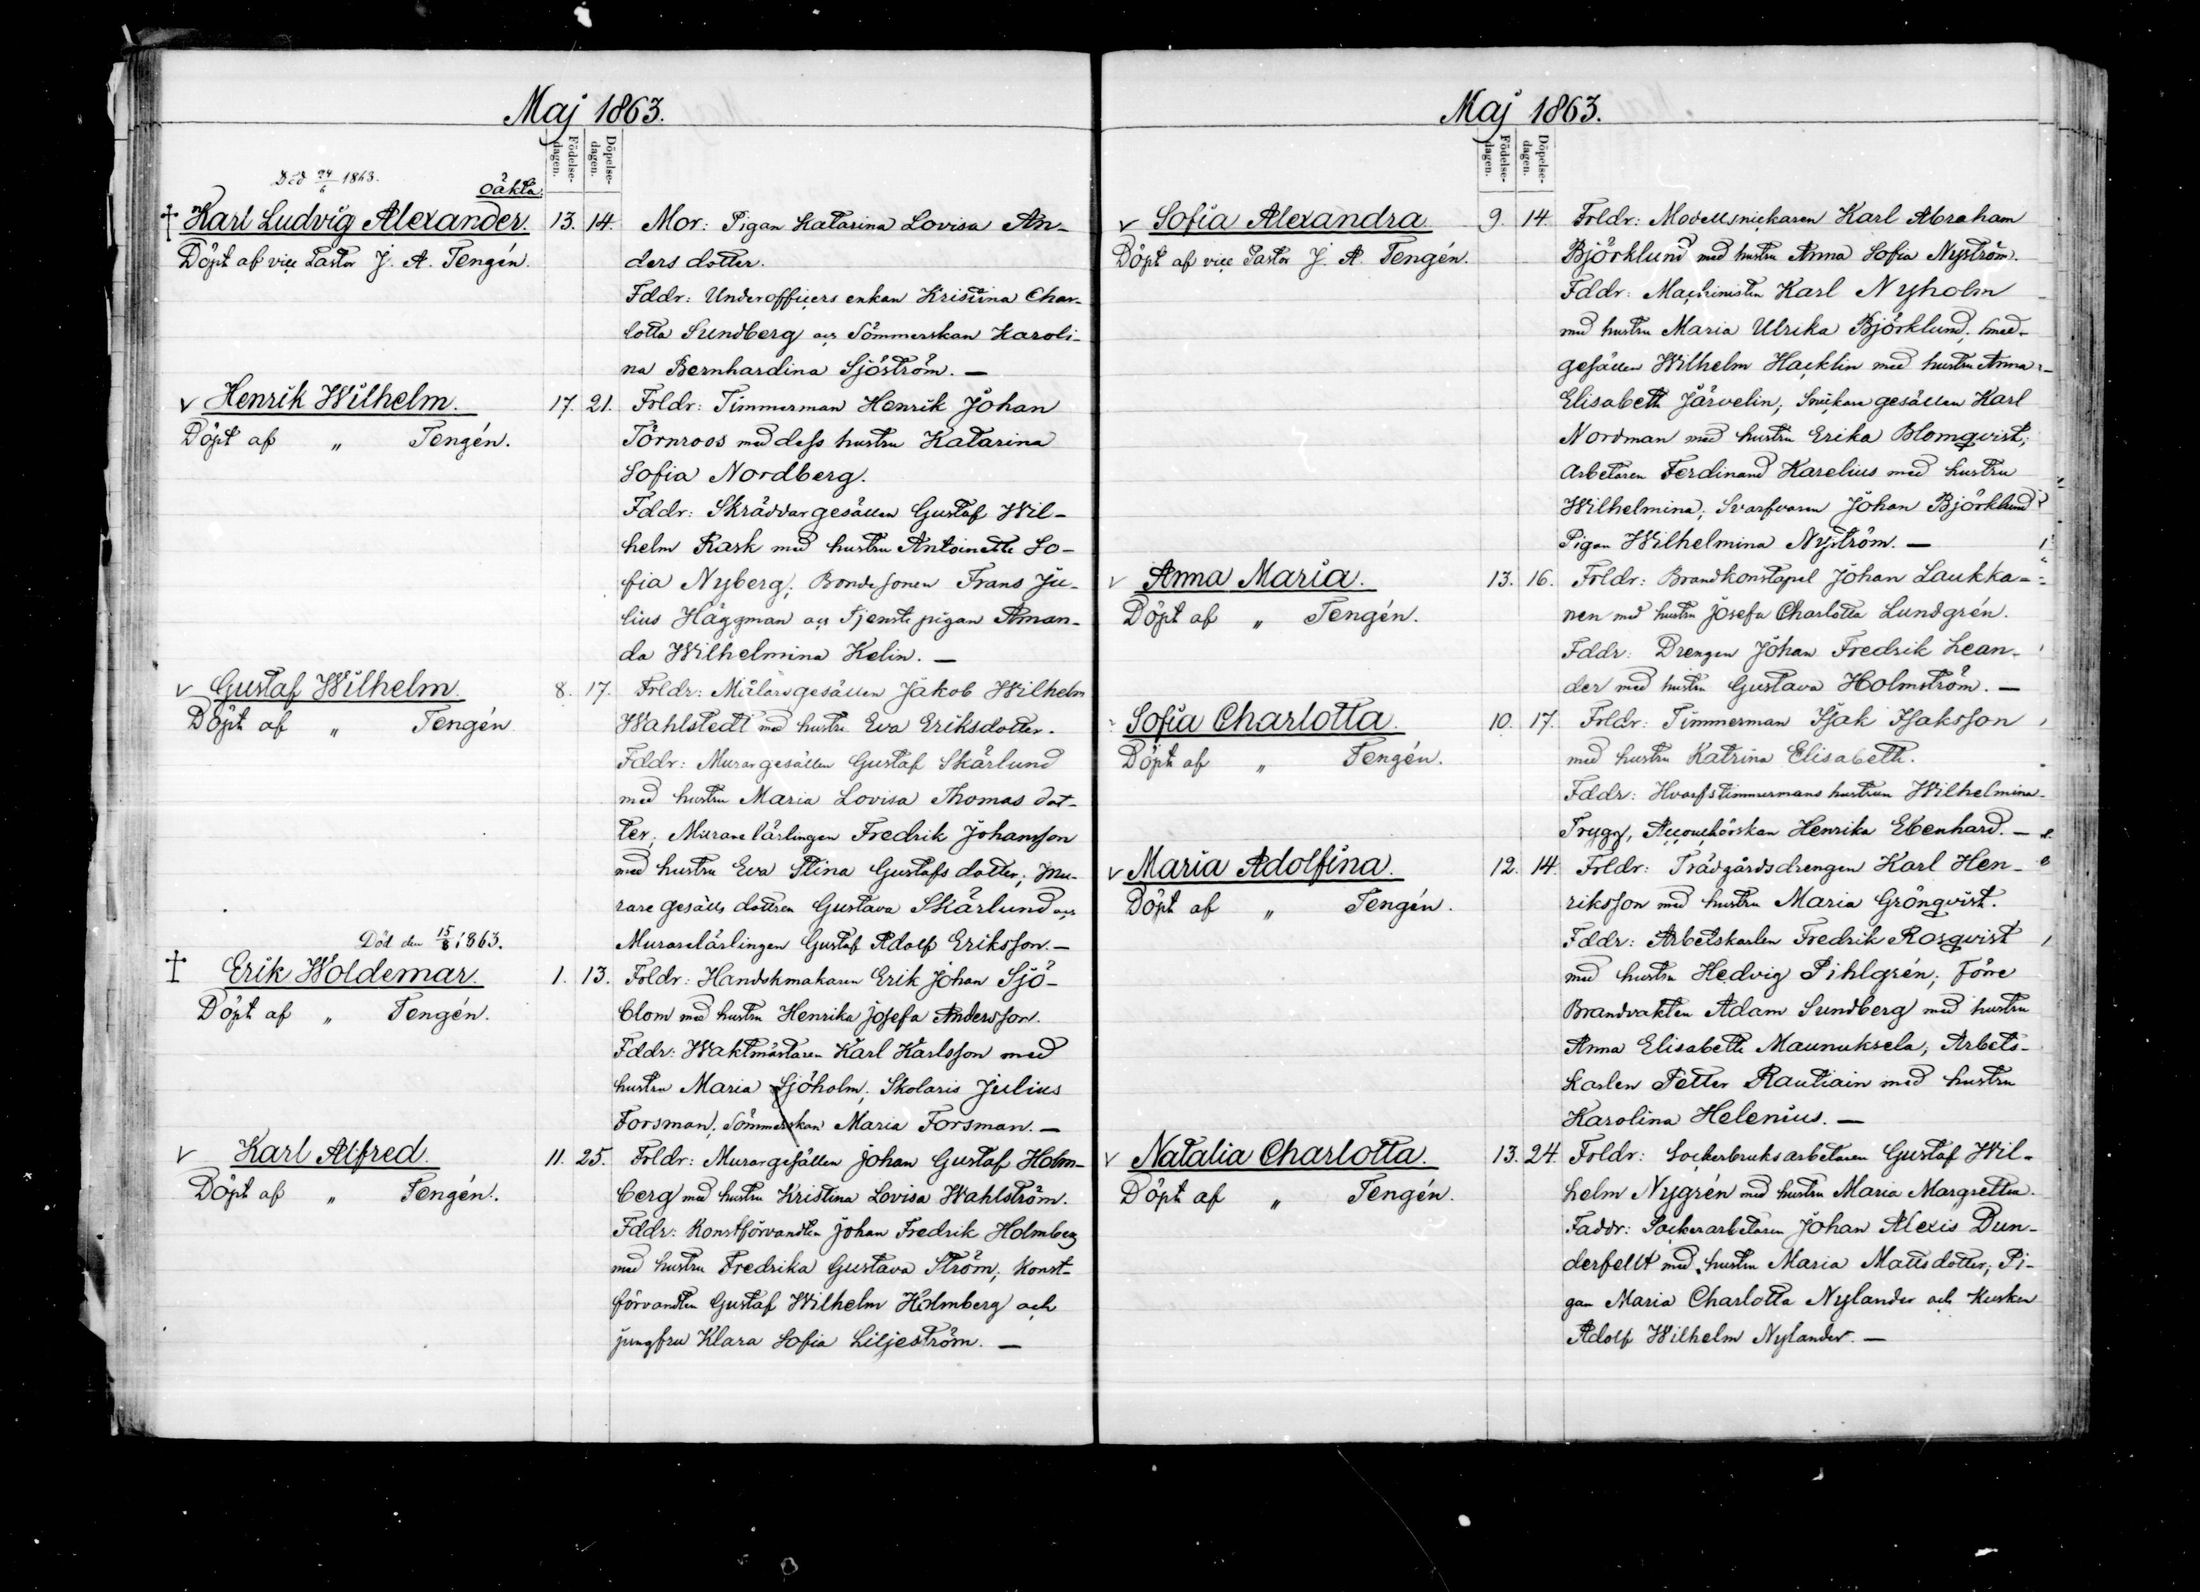 Maj 1863.
Födelse-dagen.
Döpelse-dagen.
Död 24/6 1863.
oäkta.
Karl Ludvig Alexander. 13. 14. Mor: Pigan Katarina Lovisa An-
Döpt af vice Pastor J. A. Tengén. ders dotter.
Fddr: Underofficers enkan Kristina Char-
lotta Sundberg och Sömmerskan Karoli-
na Bernhardina Sjöström. —
v Henrik Wilhelm. 17. 21. Frldr: Timmerman Henrik Johan
Döpt af „ Tengén. Törnroos med dess hustru Katarina
Sofia Nordberg.
Fddr: Skräddargesällen Gustaf Wil-
helm Rask med hustru Antoinette So-
fia Nyberg; Bondesonen Frans Ju-
lius Häggman och Tjenstepigan Aman-
da Wilhelmina Kelin. —
v Gustaf Wilhelm. 8. 17. Frldr: Målaregesällen Jakob Wilhelm
Döpt af „ Tengén Wahlstedt med hustru Eva Eriksdotter.
Fddr: Murargesällen Gustaf Skärlund
med hustru Maria Lovisa Thomas dot-
ter; Murarelärlingen Fredrik Johansson
med hustru Eva Stina Gustafs dotter; Mu-
raregesälls dottren Gustava Skärlund och
Död den 15/8 1863. Murarelärlingen Gustaf Adolf Eriksson. —
Erik Woldemar. 1. 13. Foldr: Handskmakaren Erik Johan Sjö-
Döpt af „ Tengén. blom med hustru Henrika Josefa Andersson.
Fddr: Waktmästaren Karl Karlsson med
hustru Maria Sjöholm; Skolaris Julius
Forsman; Sömmerskan Maria Forsman. —
v Karl Alfred. 11. 25. Frldr: Murargesällen Johan Gustaf Holm-
Döpt af „ Tengén. berg med hustru Kristina Lovisa Wahlström.
Fddr: Konstförvandten Johan Fredrik Holmberg
med hustru Fredrika Gustava Ström; Konst-
förvandten Gustaf Wilhelm Holmberg och
jungfru Klara Sofia Liljeström. —
Maj 1863.
Födelse-dagen.
Döpelse-dagen.
v Sofia Alexandra 9. 14. Frldr: Modellsnickaren Karl Abraham
Döpt af vice Pastor J. A. Tengén. Björklund med hustru Anna Sofia Nyström.
Fddr: Machinisten Karl Nyholm
med hustru Maria Ulrika Björklund; smed-
gesällen Wilhelm Hacklin med hustru Anna
Elisabeth Järvelin; Snickaregesällen Karl
Nordman med hustru Erika Blomqvist;
Arbetaren Ferdinand Karelius med hustru
Wilhelmina; Svarfvaren Johan Björklund
Pigan Wilhelmina Nyström. —
v Anna Maria. 13. 16. Frldr: Brandkonstapel Johan Laukka-
Döpt af „ Tengén. nen med hustru Josefa Charlotta Lundgrén.
Fddr: Drengen Johan Fredrik Lean-
der med hustru Gustava Holmström. —
Sofia Charlotta. 10. 17. Frldr: Timmerman Isak Isaksson
Döpt af „ Tengén. med hustru Katrina Elisabeth.
Fddr: Hvarfstimmermans hustrun Wilhelmina
Trygg, Accouchörskan Henrika Ebenhard. —
v Maria Adolfina. 12. 14. Frldr: Trädgårdsdrengen Karl Hen-
Döpt af „ Tengén. riksson med hustru Maria Grönqvist.
Fddr: Arbetskarlen Fredrik Rosqvist
med hustru Hedvig Pihlgrén; Förre
Brandvakten Adam Sundberg med hustru
Anna Elisabeth Maunuksela; Arbets-
karlen Petter Rautiain med hustru
Karolina Helenius. —
v Natalia Charlotta. 13. 24. Foldr: Sockerbruksarbetaren Gustaf Wil-
Döpt af „ Tengén. helm Nygrén med hustru Maria Margretha.
Faddr: Sockerarbetaren Johan Alexis Dun-
derfelt med hustru Maria Mattsdotter; Pi-
gan Maria Charlotta Nylander och Kusken
Adolf Wilhelm Nylander. —